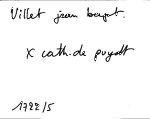 Villet jean bapt.
X cath. de puydt
1792/5